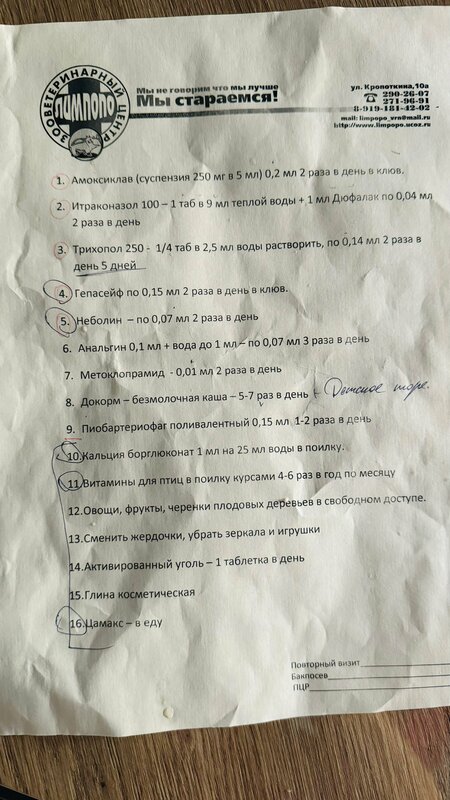 ЗООВЕТЕРИНАРНЫЙ ЦЕНТР
ЛИМПОПО
Мы не говорим что мы лучше
Мы стараемся!
ул. Кропоткина, 10а
290-26-07
271-96-91
8-919-181-42-02
mail: limpopo_vrn@mail.ru
http://www.limpopo.ucoz.ru
1. Амоксиклав (суспензия 250 мг в 5 мл) 0,2 мл 2 раза в день в клюв.
2. Итраконазол 100 – 1 таб в 9 мл теплой воды + 1 мл Дюфалак по 0,04 мл
2 раза в день
3. Трихопол 250 - 1/4 таб в 2,5 мл воды растворить, по 0,14 мл 2 раза в
день 5 дней
4. Гепасейф по 0,15 мл 2 раза в день в клюв.
5. Неболин – по 0,07 мл 2 раза в день
6. Анальгин 0,1 мл + вода до 1 мл – по 0,07 мл 3 раза в день
7. Метоклопрамид - 0,01 мл 2 раза в день
8. Докорм – безмолочная каша – 5-7 раз в день + Детское пюре.
9. Пиобактериофаг поливалентный 0,15 мл 1-2 раза в день
10. Кальция борглюконат 1 мл на 25 мл воды в поилку.
11. Витамины для птиц в поилку курсами 4-6 раз в год по месяцу
12. Овощи, фрукты, черенки плодовых деревьев в свободном доступе.
13. Сменить жердочки, убрать зеркала и игрушки
14. Активированный уголь – 1 таблетка в день
15. Глина косметическая
16. Цамакс – в еду
Повторный визит
Бакпосев
ПЦР